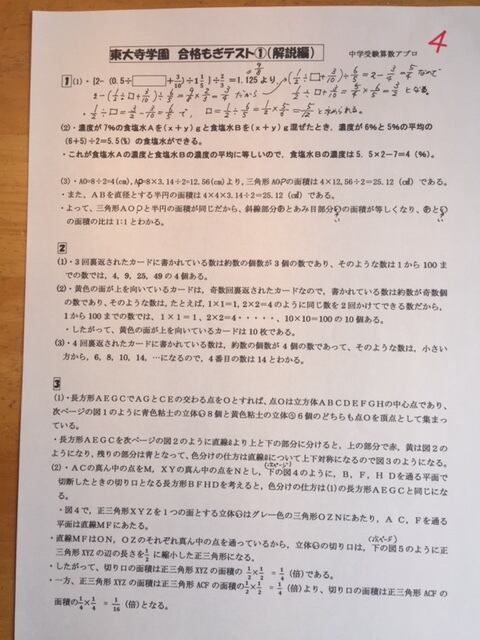 東大寺学園　合格もぎテスト①(解説編)
中学受験算数アプロ
4
1
(1)・{2-(0.5÷□+3/10)÷1 1/5}÷2/3=1.125より、
9/8
(1/2÷□+3/10)÷6/5=2-3/4=5/4なので
2-(1/2÷□+3/10)÷6/5=9/8×2/3=3/4だから
1/2÷□+3/10=5/4×6/5=3/2となる。
・1/2÷□=3/2-3/10=6/5で、□=1/2÷6/5=1/2×5/6=5/12と求められる。
(2)・濃度が7%の食塩水Aを(x+y)gと食塩水Bを(x+y)g混ぜたとき、濃度が6%と5%の平均の
(6+5)÷2=5.5(%)の食塩水ができる。
・これが食塩水Aの濃度と食塩水Bの濃度の平均に等しいので、食塩水Bの濃度は5.5×2-7=4(%)。
(3)・AO=8÷2=4(cm),AP=8×3.14÷2=12.56(cm)より、三角形AOPの面積は4×12.56÷2=25.12(㎠)である。
・また、ABを直径とする半円の面積は4×4×3.14÷2=25.12(㎠)である。
・よって、三角形AOPと半円の面積が同じだから、斜線部分あとあみ目部分いの面積が等しくなり、あとい
の面積の比は1:1とわかる。
2
(1)・3回裏返されたカードに書かれている数は約数の個数が3個の数であり、そのような数は1から100ま
での数では、4，9，25，49の4個ある。
(2)・黄色の面が上を向いているカードは、奇数回裏返されたカードなので、書かれている数は約数が奇数個
の数であり、そのような数は、たとえば、1×1=1，2×2=4のように同じ数を2回かけてできる数だから、
1から100までの数では、1×1=1、2×2=4・・・・・、10×10=100の10個ある。
・したがって、黄色の面が上を向いているカードは10枚である。
(3)・4回裏返されたカードに書かれている数は、約数の個数が4個の数であって、そのような数は、小さい
方から、6，8，10，14，…になるので、4番目の数は14とわかる。
3
(1)・長方形AEGCでAGとCEの交わる点をOとすれば、点Oは立方体ABCDEFGHの中心点であり、
次ページの図1のように青色粘土の立体い8個と黄色粘土の立体う6個のどちらも点Oを頂点として集まっ
ている。
・長方形AEGCを次ページの図2のように直線ℓより上と下の部分に分けると、上の部分で赤，黄は図2の
ようになり、残りの部分は青となって、色分けの仕方は直線ℓについて上下対称になるので図3のようになる。
(次ページ)
(2)・ACの真ん中の点をM，XYの真ん中の点をNとし、下の図4のように、B，F，H Dを通る平面で
切断したときの切り口となる長方形BFHDを考えると、色分けの仕方は(1)の長方形AEGCと同じにな
る。
・図4で、正三角形XYZを1つの面とする立体いはグレー色の三角形OZNにあたり、A C，Fを通る
平面は直線MFにあたる。
(次ページ)
・直線MFはON，OZのそれぞれ真ん中の点を通っているから、立体いの切り口は、下の図5のように正
三角形XYZの辺の長さを1/2に縮小した正三角形になる。
・したがって、切り口の面積は正三角形XYZの面積の1/2×1/2=1/4(倍)である。
・一方、正三角形XYZの面積は正三角形ACFの面積の1/2×1/2=1/4(倍)より、切り口の面積は正三角形ACFの
面積の1/4×1/4=1/16(倍)となる。